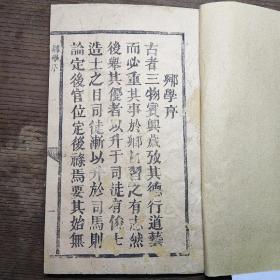 鄉學序
古者三物賓興歲攷其德行道藝
而必重其事於鄉習之有志然
後舉其優者以升于司徒有俊士
造士之目司徒漸以升於司馬則
論定後官位定後祿焉要其始無